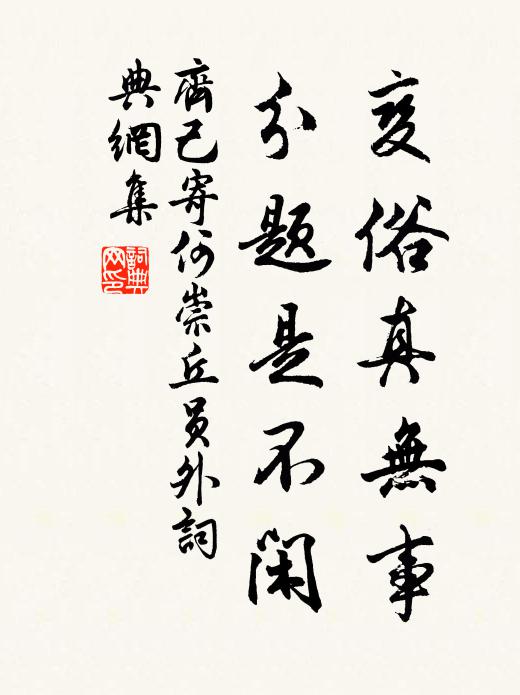 变俗真無事
分題是不閑
齊己寄何崇丘員外詞
典網集
詞典
网印